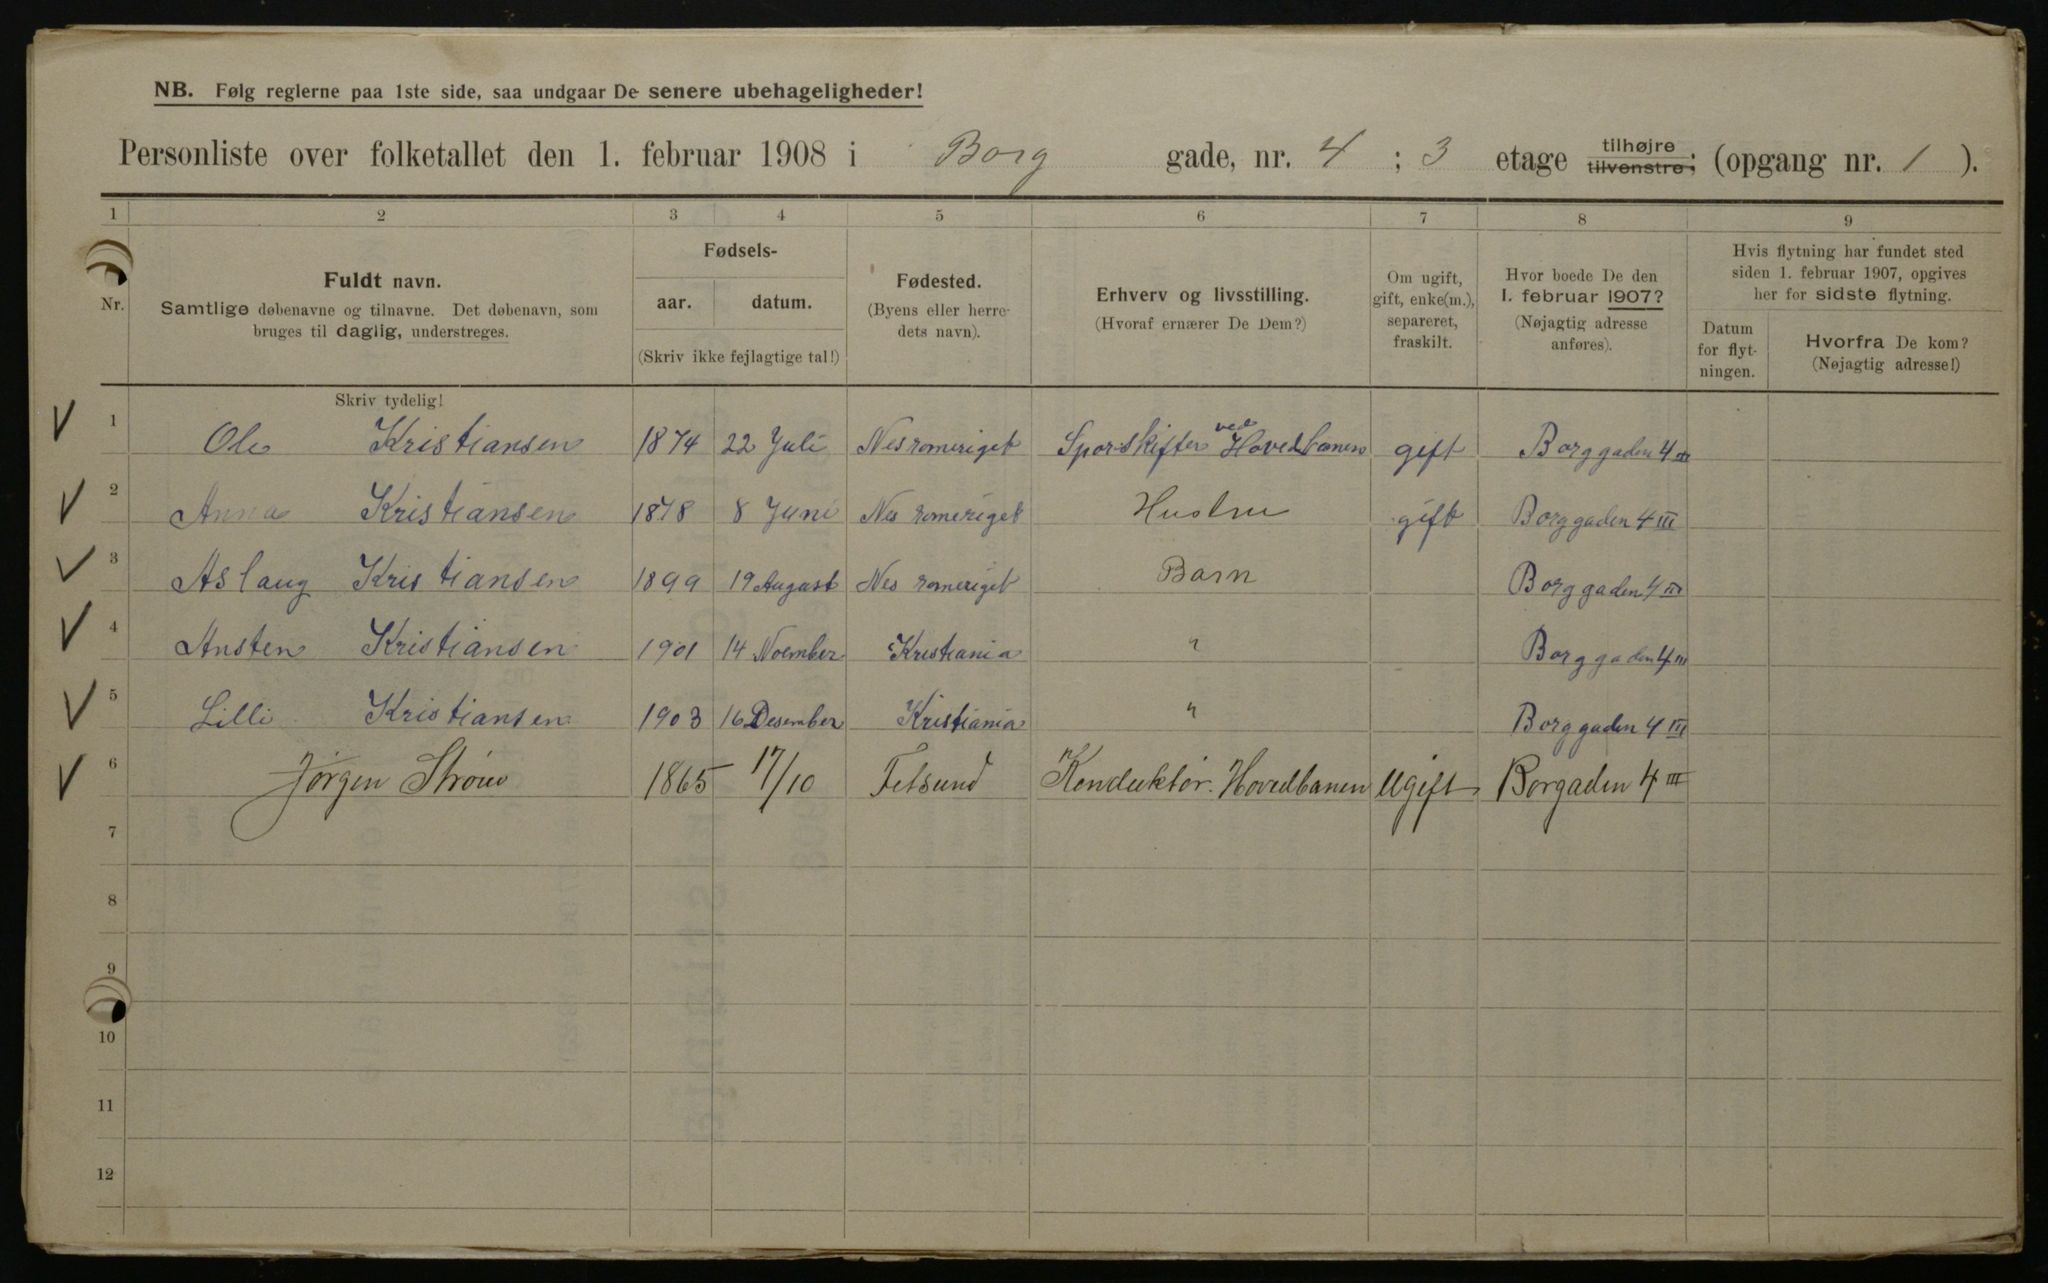 NB. Følg reglerne paa 1ste side, saa undgaar De senere ubehageligheder!
Personliste over folketallet den 1. februar 1908 i Borg gade, nr. 4 ; 3 etage tilhøjre tilvenstre; (opgang nr. 1 ).
1 2 3 4 5 6 7 8 9
Nr.
Fuldt navn.
Samtlige døbenavne og tilnavne. Det døbenavn, som
bruges til daglig, understreges.
Skriv tydelig!
Fødsels-
aar. datum.
(Skriv ikke fejlagtige tal!)
Fødested.
(Byens eller herre-
dets navn).
Erhverv og livsstilling.
(Hvoraf ernærer De Dem?)
Om ugift,
gift, enke(m.),
separeret,
fraskilt.
Hvor boede De den
1. februar 1907?
(Nøjagtig adresse
anføres).
Hvis flytning har fundet sted
siden 1. februar 1907, opgives
her for sidste flytning.
Datum
for flyt-
ningen.
Hvorfra De kom?
(Nøjagtig adresse!)
1 Ole Kristiansen 1874 22 Juli Nes romeriget Sporskifter ved Hovedbanen gift Borggaden 4 III
2 Anna Kristiansen 1878 8 Juni Nes romeriget Hustru gift Borggaden 4 III
3 Aslaug Kristiansen 1899 19 August Nes romeriget Barn Borggaden 4 III
4 Austen Kristiansen 1901 14 Noember Kristiania " Borggaden 4 III
5 Lilli Kristiansen 1903 16 Desember Kristiania " Borggaden 4 III
6 Jørgen Strøm 1865 17/10 Fetsund Konduktør. Hovedbanen Ugift Borgaden 4 III
7
8
9
10
11
12